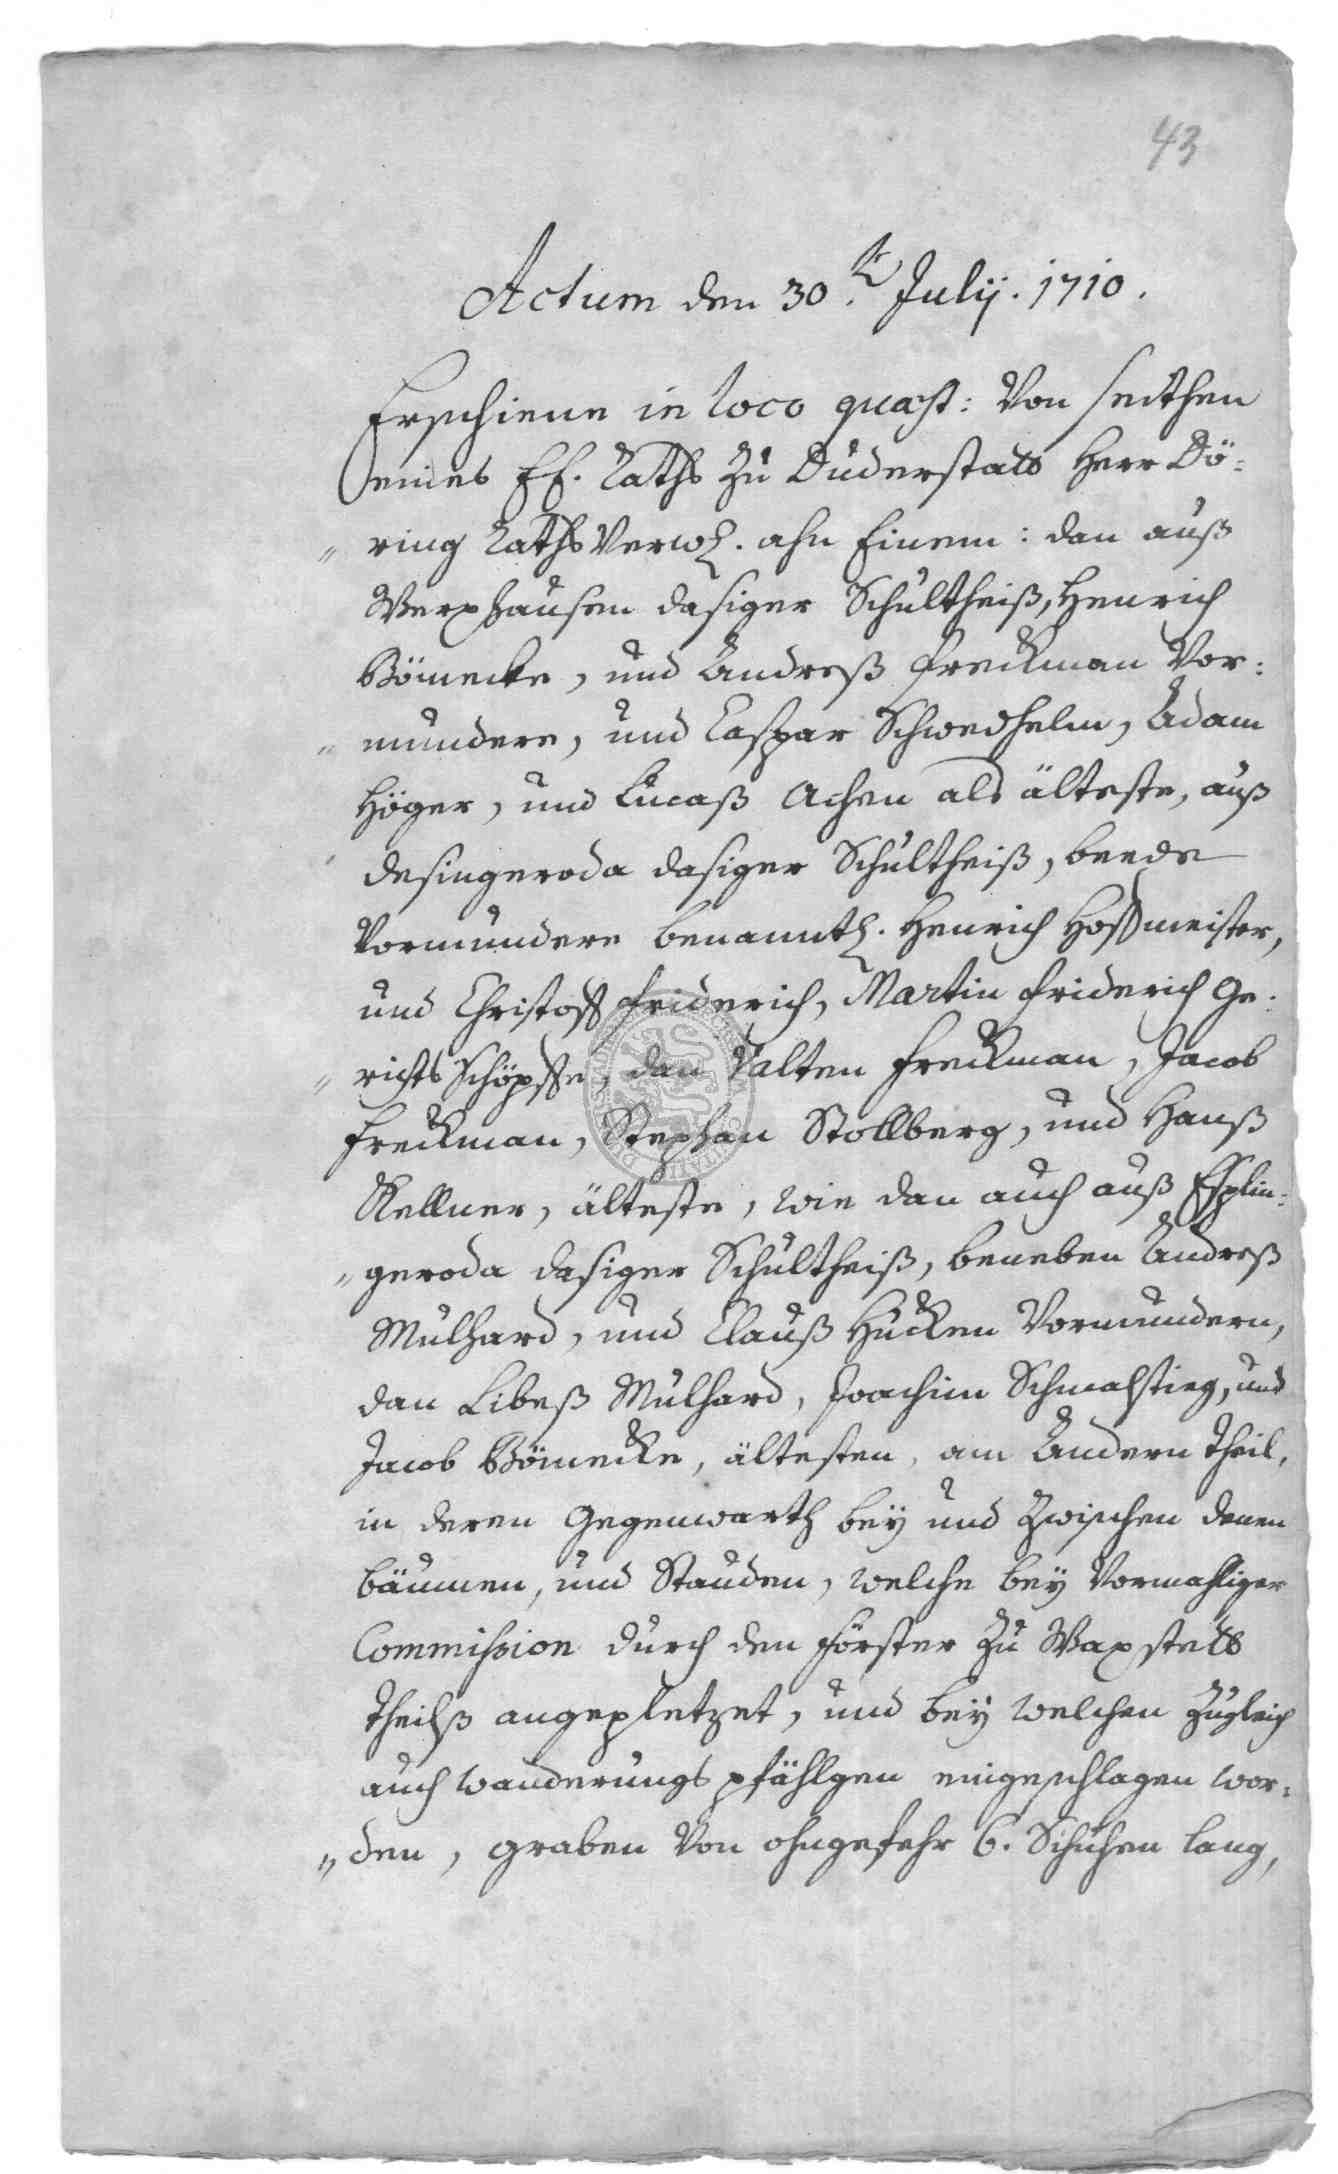 43
Actum den 30.t Julij. 1710.
Erschiene in loco quaest: Von seithen
eines Ef. Raths zu Duderstatt Herr Dö:
„ ring RathsVerwh. ahn Einem: dan auß
Werxhausen dasiger Schultheiß, Henrich
Bömecke, und Andreß Freckman Vor:
„ mundere, und Caspar Schwedhelm, Adam
Höger, und Lucaß Achen als älteste, auß
desingeroda dasiger Schultheiß, beede
Vormundere benanntl. Henrich Hoffmeister,
und Christoff Friderich, Martin Friderich Ge:
„ richts Schöpffe, dan Valten Freckman, Jacob
Freckman, Stephan Stollberg, und Hanß
Kellner, älteste, wie dan auch auß Esplin:
„ geroda dasiger Schultheiß, beneben Andreß
Mulhard, und Clauß Hucken Vormundern,
dan Libeß Mulhard, Joachim Schmalstieg, und
Jacob Bömecke, ältesten, am Andern theil,
in deren Gegenwarth bey und zwischen denen
bäumen, und Stauden, welche bey Vormahliger
Commission durch den Förster zu Waxstett
theilß angepletzet, und bey welchen zugleich
auch wanderungs pfählgen eingeschlagen wor:
„ den, graben Von ohngefehr 6. Schuhen lang,